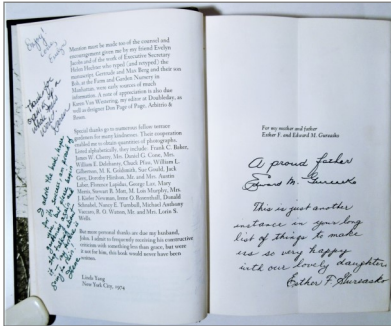 Enjoy!
Love,
Evelyn
Mention must be made too of the counsel and
encouragement given me by my friend Evelyn
Jacobs and of the work of Executive Secretary
Helen Huehne who typed (and retyped) the
manuscript. Gertrude and Max Berg and their son
Bob, at the Farm and Garden Nursery in
Manhattan, were early sources of much
information. A note of appreciation is also due
Karen Van Westering, my editor at Doubleday, as
well as designer Don Page of Page, Arbitrio &
Resen.
Special thanks go to numerous fellow terrace
gardeners for many kindnesses. Their cooperation
enabled me to obtain quantities of photographs.
Listed alphabetically, they include: Frank C. Baker,
James W. Cherry, Mrs. Daniel G. Crane, Mrs.
William E. Delehanty, Chuck Pfan, William L.
Gilbertson, M. K. Goldsmith, Sue Gould, Jack
Grey, Dorothy Hirshon, Mr. and Mrs. Austin
Lafar, Florence Lapidus, George Lee, Mary
Morin, Stewart R. Mott, M. Lois Murphy, Mrs.
J. Kiefer Newman, Irene O. Rosenthal, Donald
Schnabel, Nancy E. Turnbull, Michael Anthony
Vaccaro, R. O. Watson, Mr. and Mrs. Lorin S.
Wells.
But most personal thanks are due my husband,
John. I admit to frequently receiving his constructive
criticism with something less than grace, but were
it not for him, this book would never have been
written.
Linda Yang
New York City, 1974
For my mother and father
Esther F. and Edward M. Gureasko
A proud father
Edward M. Gureasko
This is just another
instance in your long
list of things to make
us so very happy
with our lovely daughter
Esther F. Gureasko